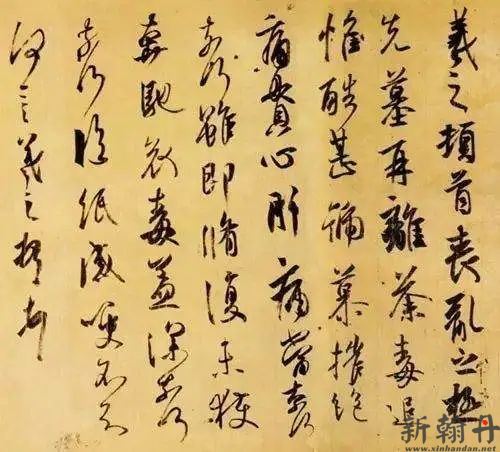 羲之頓首喪亂之極
先墓再離荼毒追
惟酷甚號慕摧絕
痛貫心肝痛當奈何
奈何雖即脩復未獲
奔馳哀毒益深奈何
奈何臨紙感哽不知
何言羲之頓首頓首
新翰丹
www.xinhandan.net